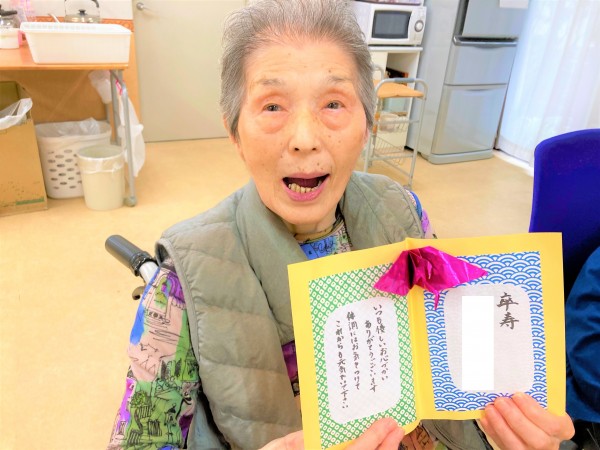 卒寿
いつも優しいお心づかい
ありがとうございます
体調にはお気をつけて
これからも元気でいて下さい